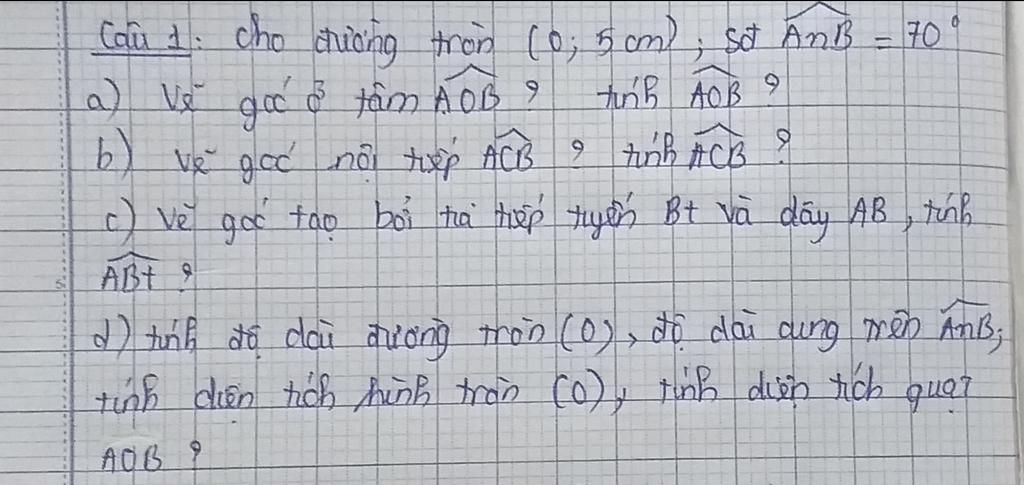 Câu 1: Cho đường tròn (O; 5 cm), sđ AnB = 70°
a) Vẽ góc ở tâm AOB ? tính AOB ?
b) vẽ góc nội tiếp ACB ? tính ACB ?
c) vẽ góc tạo bởi tia tiếp tuyến Bt và dây AB, tính
ABt ?
d) tính độ dài đường tròn (O), độ dài cung tròn AnB;
tính diện tích hình tròn (O), tính diện tích quạt
AOB ?